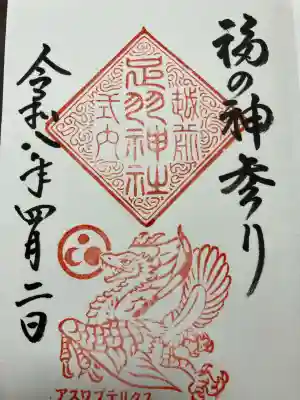 福の神参り
越前
足羽神社
式内
令和八年四月二日
アスワプテリクス